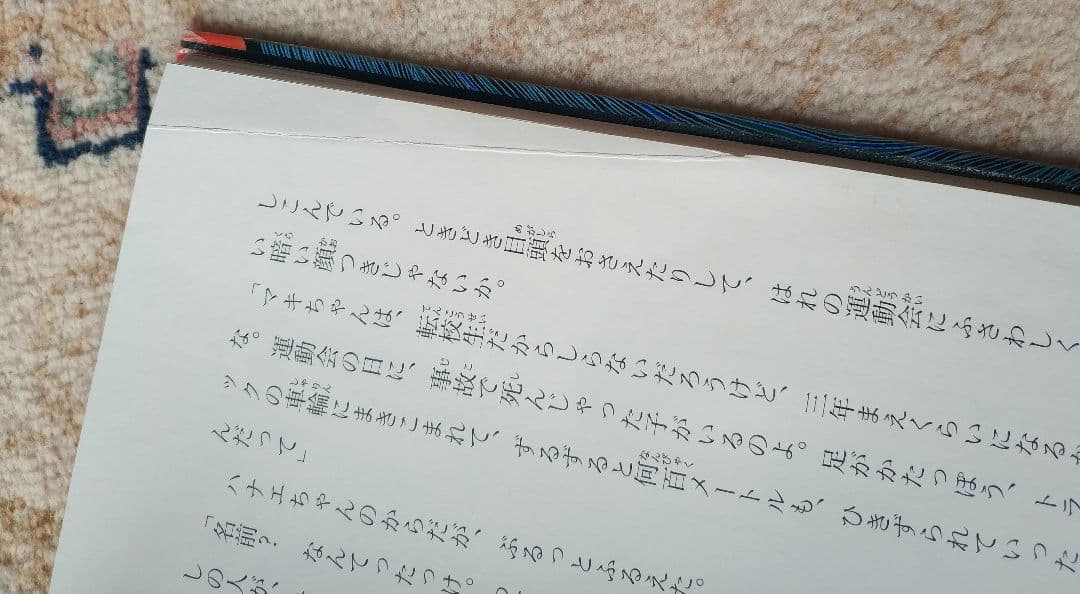 しこんでいる。ときどき目頭をおさえたりして、はれの運動会にふさわしく
い暗い顔つきじゃないか。
「マキちゃんは、転校生だからしらないだろうけど、三年まえくらいになるか
な。運動会の日に、事故で死んじゃった子がいるのよ。足がかたっぽう、トラ
ックの車輪にまきこまれて、ずるずると何百メートルも、ひきずられていった
んだって」
ハナエちゃんのからだが、ぶるっとふるえた。
「名前？　なんてったっけ。
しの人が、